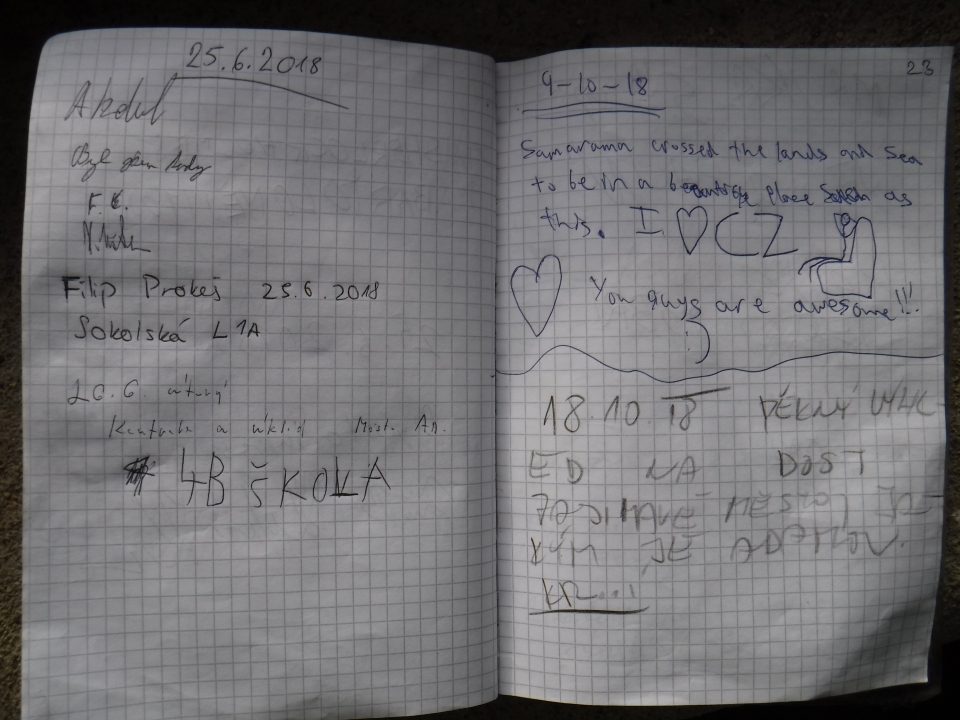 25.6.2018
Akdul
Byl jsem
F.
Filip Prokeš 25.6.2018
Sokolská L 1A
20.6.
Kontrola a úklid
4B ŠKOLA
23
9-10-18
Samarama crossed the lands and sea
to be in a beautiful place such as
this. I ♡ CZ
You guys are awesome!!!
:)
18.10.18 PĚKNÝ VÝHL
ED NA DOST
ZAJÍMAVÉ MĚSTO, KTE
RÝM JE ADAMOV.
KR...